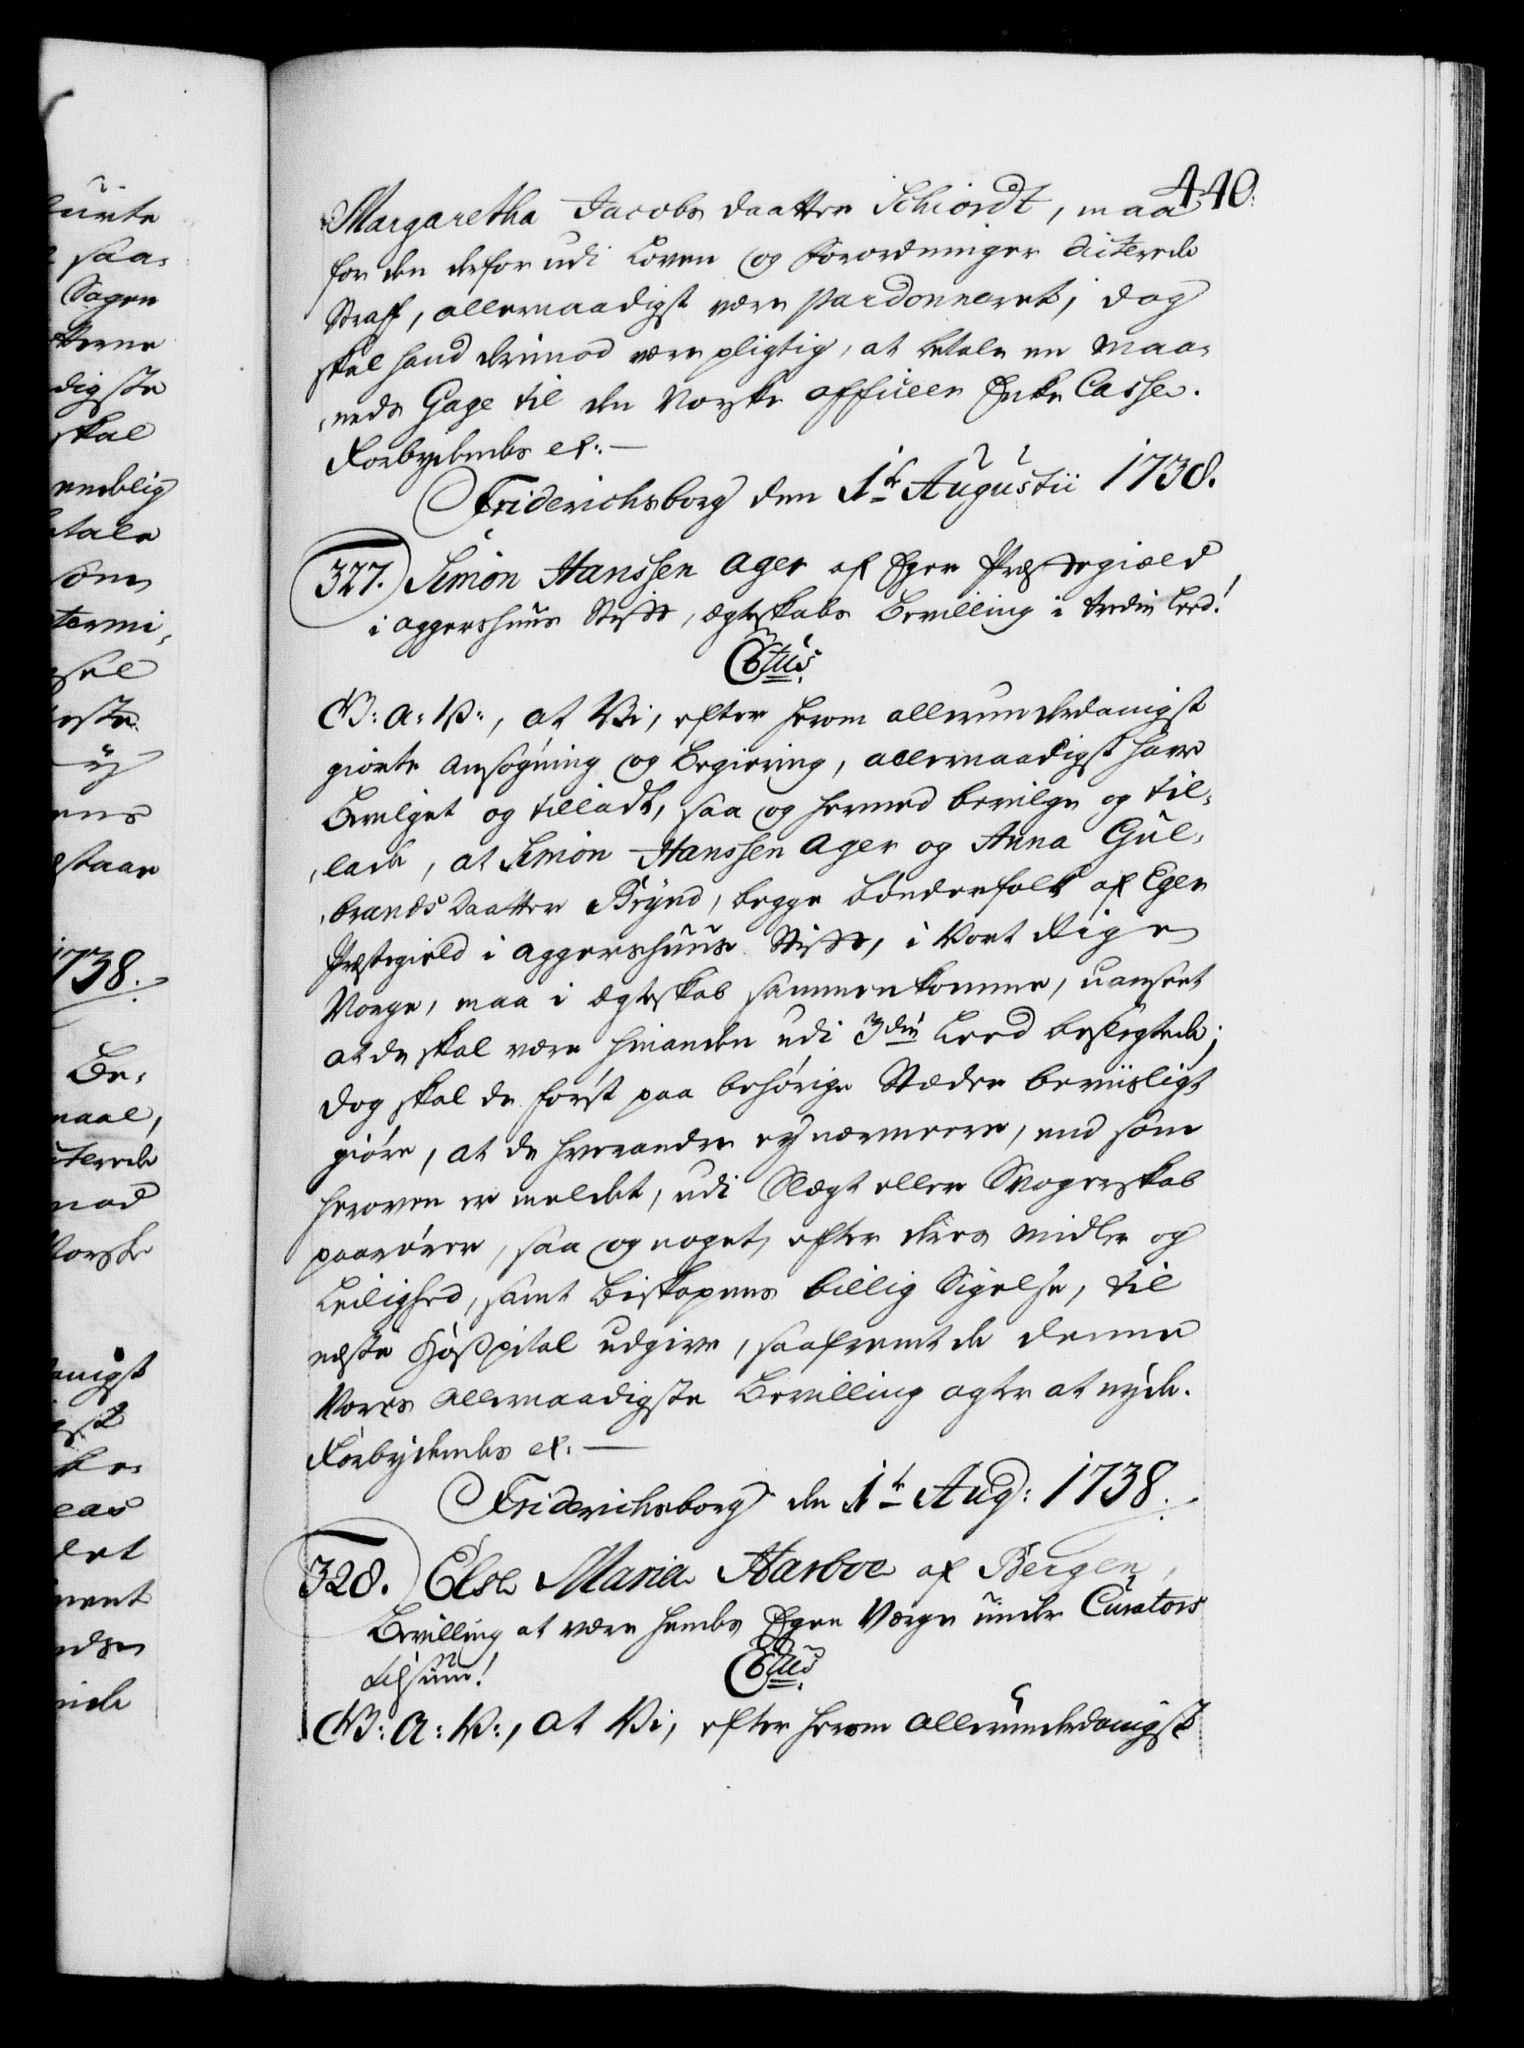 440.
Margaretha Jacobs daatter Schiordt, maa
for den derfor udi Loven og Forordninger dicterede
Straf, allernaadigst være pardonneret; dog
skal hand derimod være pligtig, at betale en Maa-
neds Gage til den Norske Officeer Enke Casse.
Forbydendes etc:
Friderichsborg den 1te Augustii 1738.
327. Simon Hanssen Ager af Eger Præstegield
i Aggershuus Stift, Ægteskabs Bevilling i tredie Leed!
C6tus
G: A: V:, at Vi, efter herom allerunderdanigst
giorte Ansøgning og Begiering, allernaadigst have
Bevilget og tilladt, saa og hermed bevilge og til-
lade, at Simon Hanssen Ager og Anna Gul-
brands Daatter Brynd, begge Bønderfolk af Eger
Præstegield i Aggershuus Stift, i Vort Rige
Norge, maa i Ægteskab sammenkomme, uanseet
at de skal være hinanden udi 3die Leed beslegtede;
dog skal de først paa behørige Stæder beviisligt
giøre, at de hverandre ey nærmere, end som
heroven er meldet, udi Slægt eller Svogerskab
paarører, saa og noget, efter deres Midler og
Leilighed, samt Biskopens billig Sigelse, til
neste Hospital udgive, saafremt de denne
Vores allernaadigste Bevilling agter at nyde.
Forbydendes etc:
Friderichsborg den 1te Aug: 1738.
328. Else Maria Harboe af Bergen,
Bevilling at være hendes Egen Værge under Curators
tilsuun!
C6tus
G: A: V:, at Vi, efter herom allerunderdanigst